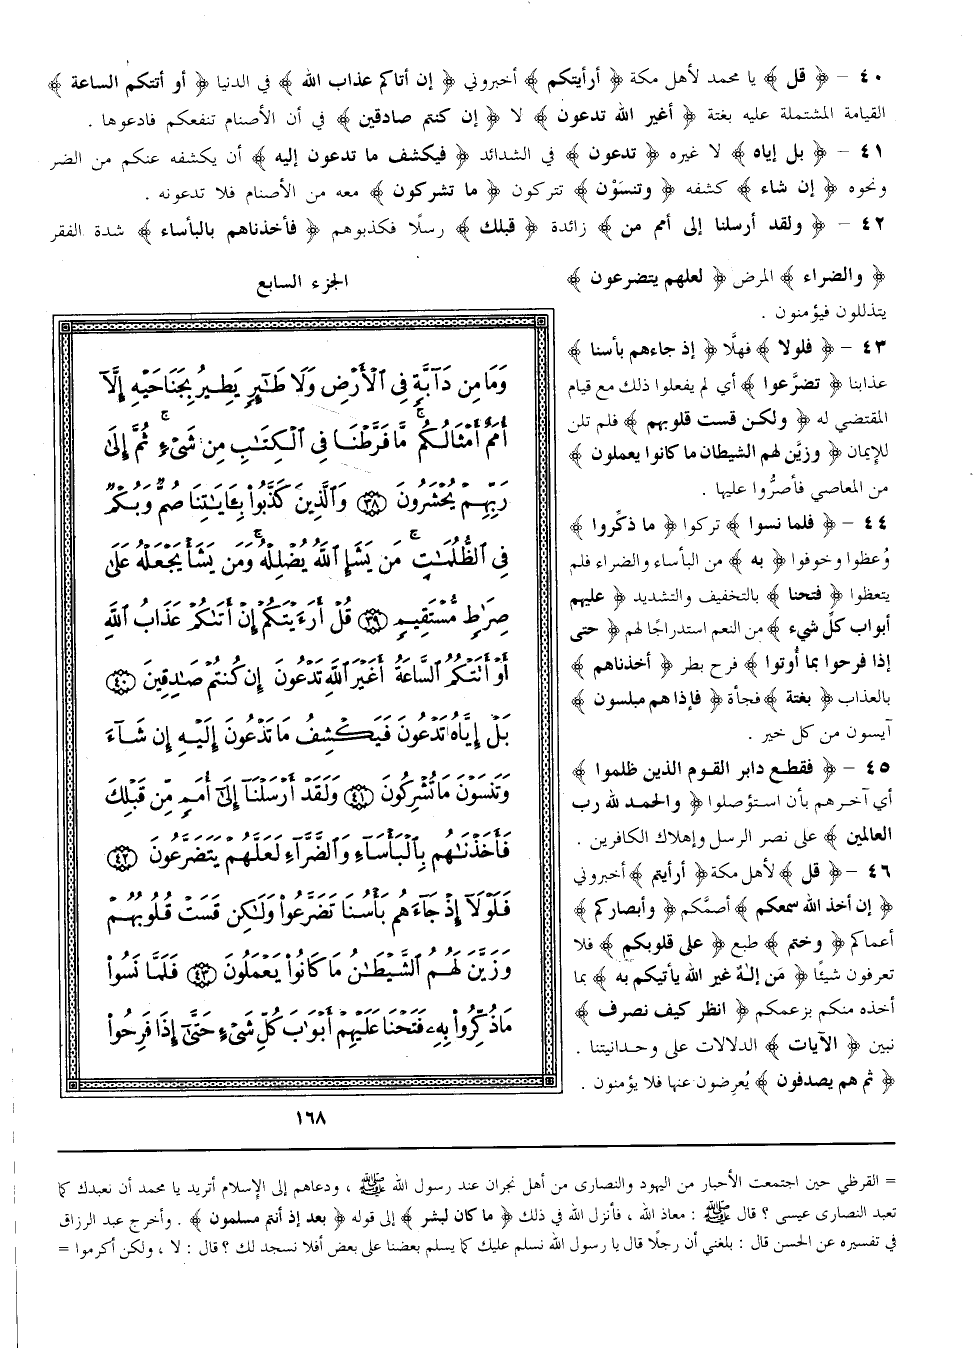 ٤٠ – ﴿ قل ﴾ يا محمد لأهل مكة ﴿ أرأيتكم ﴾ أخبروني ﴿ إن أتاكم عذاب الله ﴾ في الدنيا ﴿ أو أتتكم الساعة ﴾
القيامة المشتملة عليه بغتة ﴿ أغير الله تدعون ﴾ لا ﴿ إن كنتم صادقين ﴾ في أن الأصنام تنفعكم فادعوها .
٤١ – ﴿ بل إياه ﴾ لا غيره ﴿ تدعون ﴾ في الشدائد ﴿ فيكشف ما تدعون إليه ﴾ أن يكشفه عنكم من الضر
ونحوه ﴿ إن شاء ﴾ كشفه ﴿ وتنسَوْن ﴾ تتركون ﴿ ما تشركون ﴾ معه من الأصنام فلا تدعونه .
٤٢ – ﴿ ولقد أرسلنا إلى أمم من ﴾ زائدة ﴿ قبلك ﴾ رسلًا فكذبوهم ﴿ فأخذناهم بالبأساء ﴾ شدة الفقر
﴿ والضراء ﴾ المرض ﴿ لعلهم يتضرعون ﴾
يتذللون فيؤمنون .
٤٣ – ﴿ فلولا ﴾ فهلَّا ﴿ إذ جاءهم بأسنا ﴾
عذابنا ﴿ تضرَّعوا ﴾ أي لم يفعلوا ذلك مع قيام
المقتضي له ﴿ ولكن قست قلوبهم ﴾ فلم تلن
للإيمان ﴿ وزيَّن لهم الشيطان ما كانوا يعملون ﴾
من المعاصي فأصرُّوا عليها .
٤٤ – ﴿ فلما نسوا ﴾ تركوا ﴿ ما ذكِّروا ﴾
وُعظوا وخوفوا ﴿ به ﴾ من البأساء والضراء فلم
يتعظوا ﴿ فتحنا ﴾ بالتخفيف والتشديد ﴿ عليهم
أبواب كلِّ شيء ﴾ من النعم استدراجًا لهم ﴿ حتى
إذا فرحوا بما أُوتوا ﴾ فرح بطر ﴿ أخذناهم ﴾
بالعذاب ﴿ بغتة ﴾ فجأة ﴿ فإذا هم مبلسون ﴾
آيسون من كل خير .
٤٥ – ﴿ فقطع دابر القوم الذين ظلموا ﴾
أي آخرهم بأن استؤصلوا ﴿ والحمد لله رب
العالمين ﴾ على نصر الرسل وإهلاك الكافرين .
٤٦ – ﴿ قل ﴾ لأهل مكة ﴿ أرأيتم ﴾ أخبروني
﴿ إن أخذ الله سمعكم ﴾ أصمَّكم ﴿ وأبصاركم ﴾
أعماكم ﴿ وختم ﴾ طبع ﴿ على قلوبكم ﴾ فلا
تعرفون شيئًا ﴿ مَن إلهٌ غير الله يأتيكم به ﴾ بما
أخذه منكم بزعمكم ﴿ انظر كيف نصرف ﴾
نبين ﴿ الآيات ﴾ الدلالات على وحدانيتنا .
﴿ ثم هم يصدفون ﴾ يُعرضون عنها فلا يؤمنون .
الجزء السابع
وَمَا مِن دَآبَّةٍ فِي ٱلْأَرْضِ وَلَا طَٰٓئِرٍ يَطِيرُ بِجَنَاحَيْهِ إِلَّآ
أُمَمٌ أَمْثَالُكُم ۚ مَّا فَرَّطْنَا فِي ٱلْكِتَٰبِ مِن شَىْءٍ ۚ ثُمَّ إِلَىٰ
رَبِّهِمْ يُحْشَرُونَ ٣٨ وَٱلَّذِينَ كَذَّبُوا۟ بِـَٔايَٰتِنَا صُمٌّ وَبُكْمٌ
فِي ٱلظُّلُمَٰتِ ۗ مَن يَشَإِ ٱللَّهُ يُضْلِلْهُ ۚ وَمَن يَشَأْ يَجْعَلْهُ عَلَىٰ
صِرَٰطٍ مُّسْتَقِيمٍ ٣٩ قُلْ أَرَءَيْتَكُمْ إِنْ أَتَىٰكُمْ عَذَابُ ٱللَّهِ
أَوْ أَتَتْكُمُ ٱلسَّاعَةُ أَغَيْرَ ٱللَّهِ تَدْعُونَ إِن كُنتُمْ صَٰدِقِينَ ٤٠
بَلْ إِيَّاهُ تَدْعُونَ فَيَكْشِفُ مَا تَدْعُونَ إِلَيْهِ إِن شَآءَ
وَتَنسَوْنَ مَا تُشْرِكُونَ ٤١ وَلَقَدْ أَرْسَلْنَآ إِلَىٰٓ أُمَمٍ مِّن قَبْلِكَ
فَأَخَذْنَٰهُم بِٱلْبَأْسَآءِ وَٱلضَّرَّآءِ لَعَلَّهُمْ يَتَضَرَّعُونَ ٤٢
فَلَوْلَآ إِذْ جَآءَهُم بَأْسُنَا تَضَرَّعُوا۟ وَلَٰكِن قَسَتْ قُلُوبُهُمْ
وَزَيَّنَ لَهُمُ ٱلشَّيْطَٰنُ مَا كَانُوا۟ يَعْمَلُونَ ٤٣ فَلَمَّا نَسُوا۟
مَا ذُكِّرُوا۟ بِهِۦ فَتَحْنَا عَلَيْهِمْ أَبْوَٰبَ كُلِّ شَىْءٍ حَتَّىٰٓ إِذَا فَرِحُوا۟
١٦٨
= القرظي حين اجتمعت الأحبار من اليهود والنصارى من أهل نجران عند رسول الله ﷺ ، ودعاهم إلى الإسلام أتريد يا محمد أن نعبدك كما
تعبد النصارى عيسى ؟ قال ﷺ : معاذ الله ، فأنزل الله في ذلك ﴿ ما كان لبشر ﴾ إلى قوله ﴿ بعد إذ أنتم مسلمون ﴾ . وأخرج عبد الرزاق
في تفسيره عن الحسن قال : بلغني أن رجلًا قال يا رسول الله نسلم عليك كما يسلم بعضنا على بعض أفلا نسجد لك ؟ قال : لا ، ولكن أكرموا =